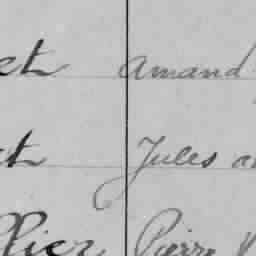 et Amand
et Jules a
llier Pierre